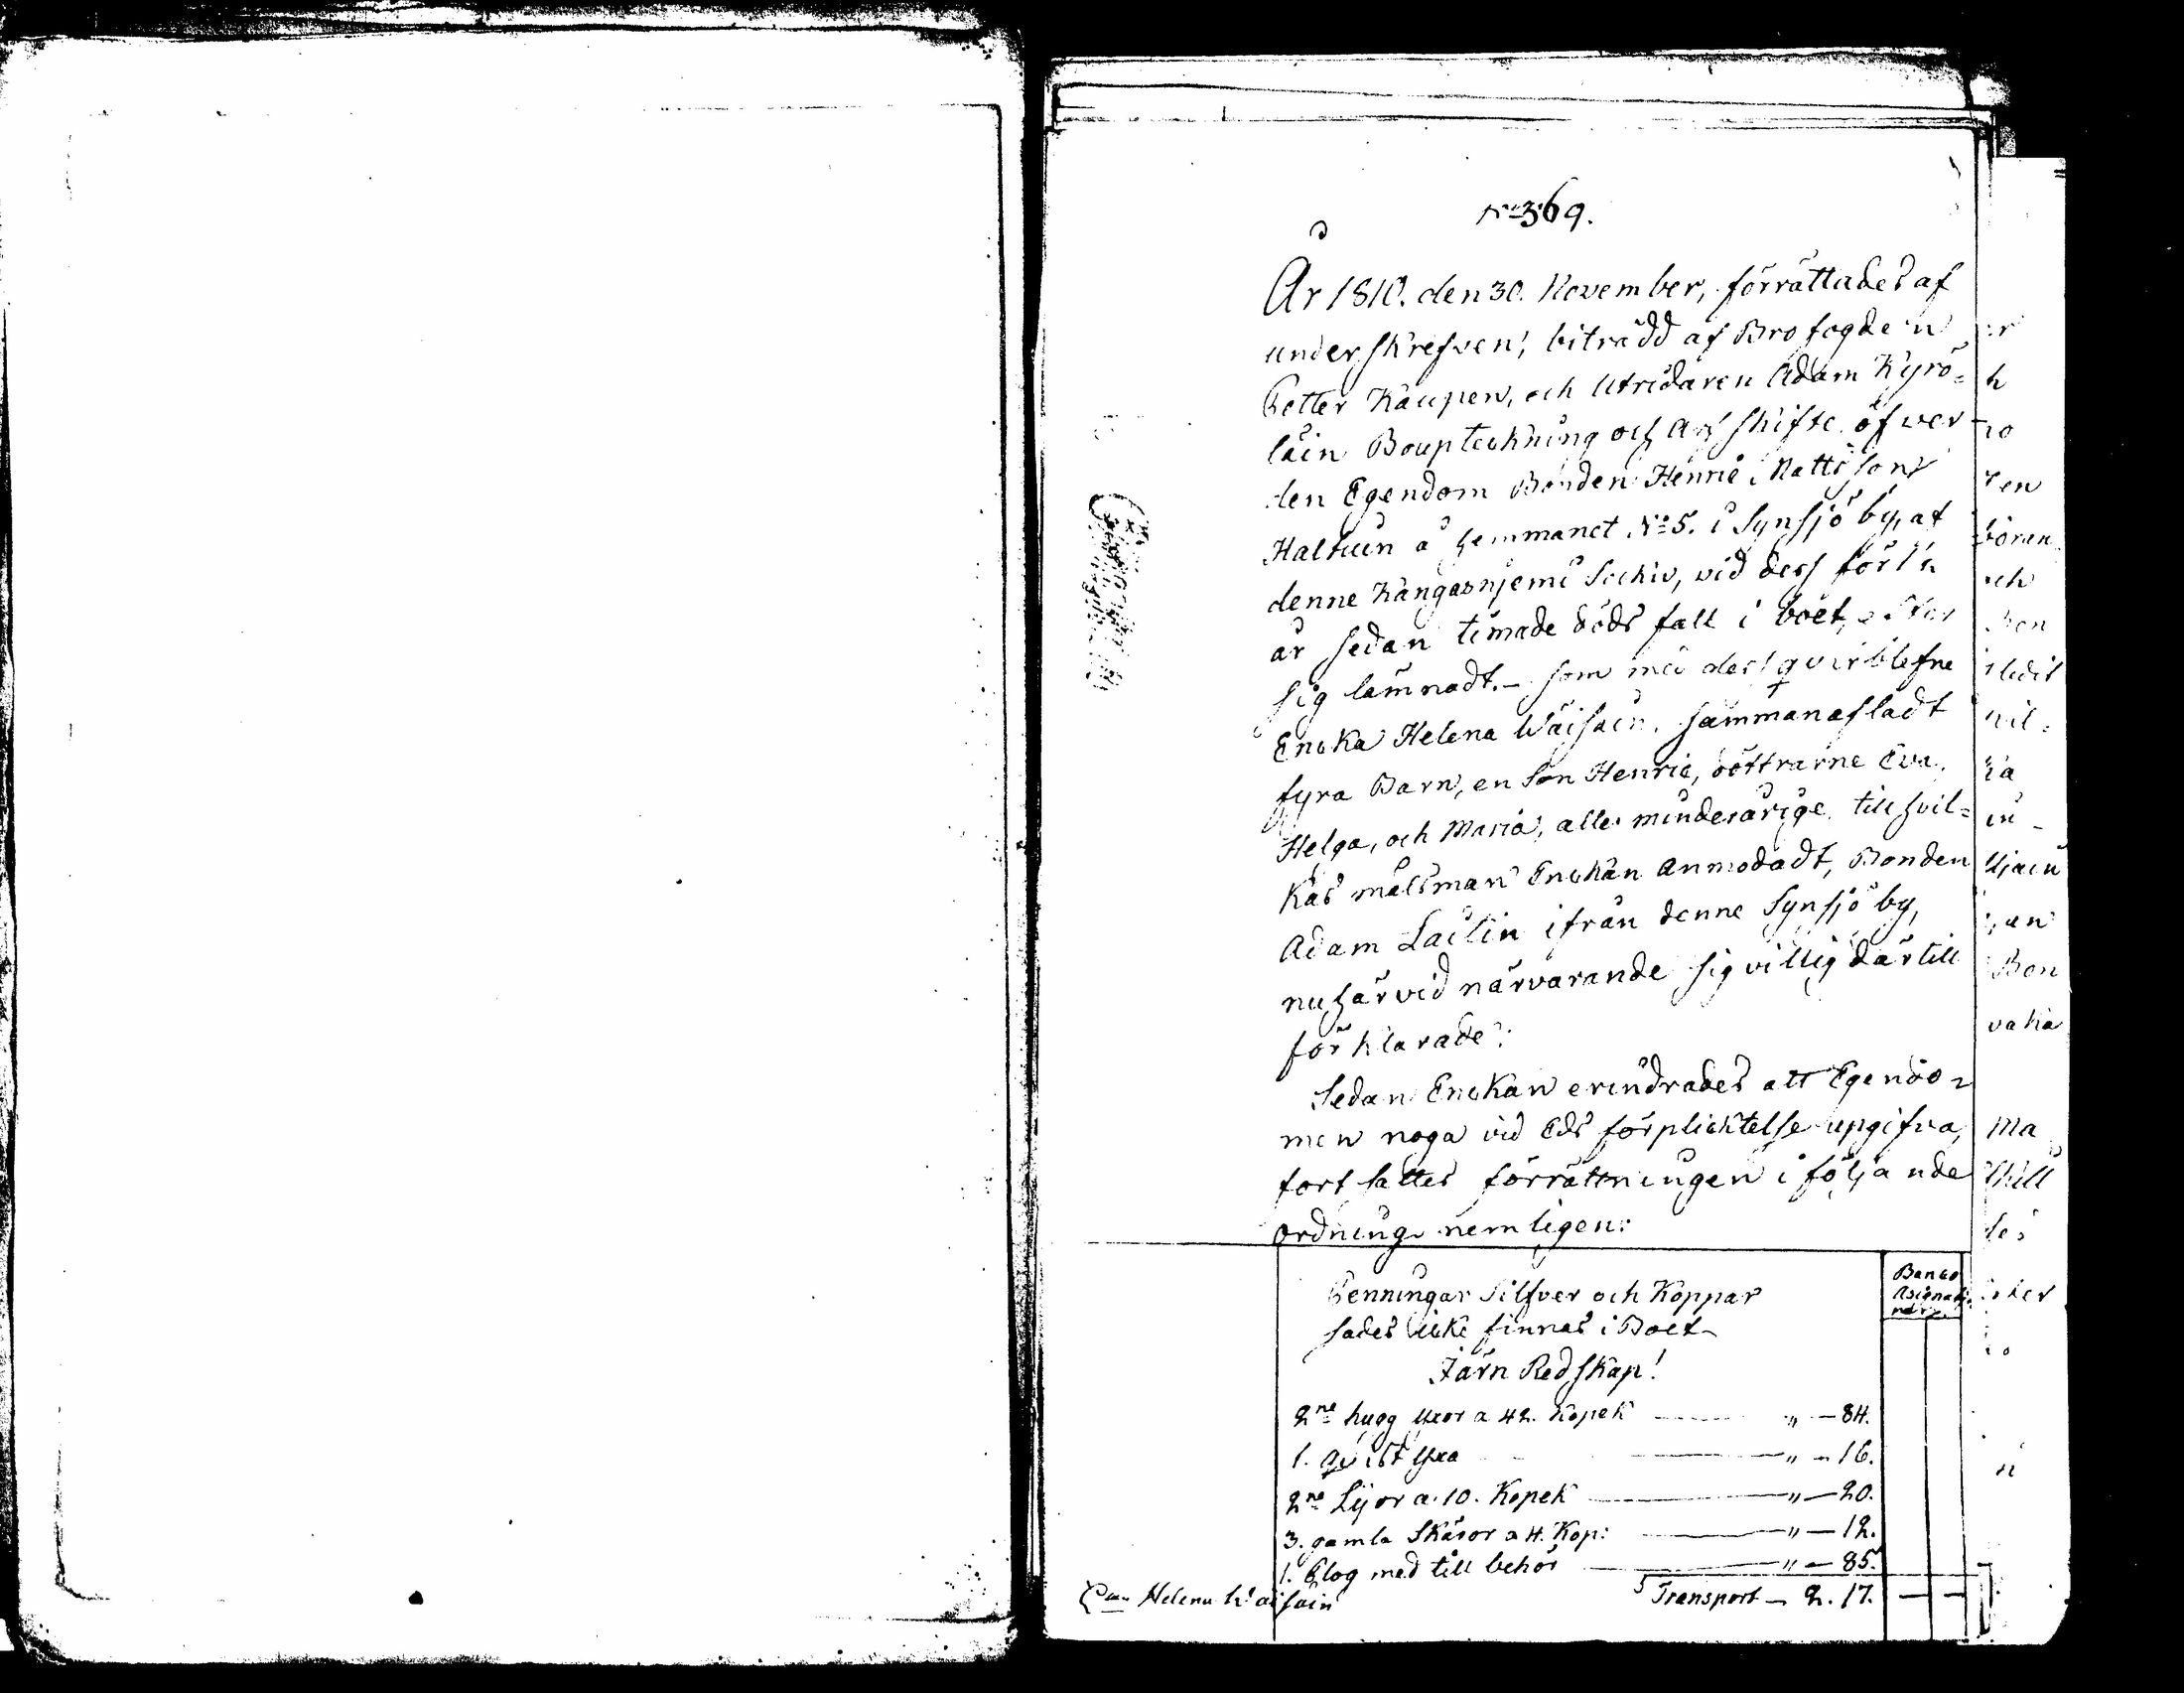 No 369.
År 1810. den 30. November, förrättades af
underskrefven, biträdd af Brofogden
Petter Kaupen, och Utridaren Adam Kyrö=
läin Bouptekning och Arfskifte öfver
den Egendom Bonden Henric Mattsson
Haltuin å hemmanet No 5. i Synsjö by, af
denne Kangasnjemi Sockn, vid dess för
år sedan timade döds fall i boet, efter
sig lämnadt. - som med dess qvarblefne
Encka Helena Wäisäin. sammanafladt
fyra Barn, en Son Henric, döttrarne Eva,
Helga, och Maria, alla minderårige, till hvil=
kas målsman Enckan anmodadt, Bonden
Adam Lailin ifrån denne Synsjö by,
nu härvid närvarande sig villig därtill
förklarade:
Sedan Enckan erindrades att Egendo=
men noga vid Eds förplicktelse upgifva,
fortsattes förrättningen i följande
ordning nemligen:
Banco
Penningar Silfver och Koppar
sades icke finnas i Boet
Järn Redskap!
2ne hugg yxor a 42. Kopek " - 84.
1. Qvist yxa " - 16.
2ne Lijor a 10. Kopek " - 20.
3. gamla Skäror a 4. Kop: " - 12.
1. Plog med till behör " - 85.
Transport - 2. 17. - -
Helena Wäisäin